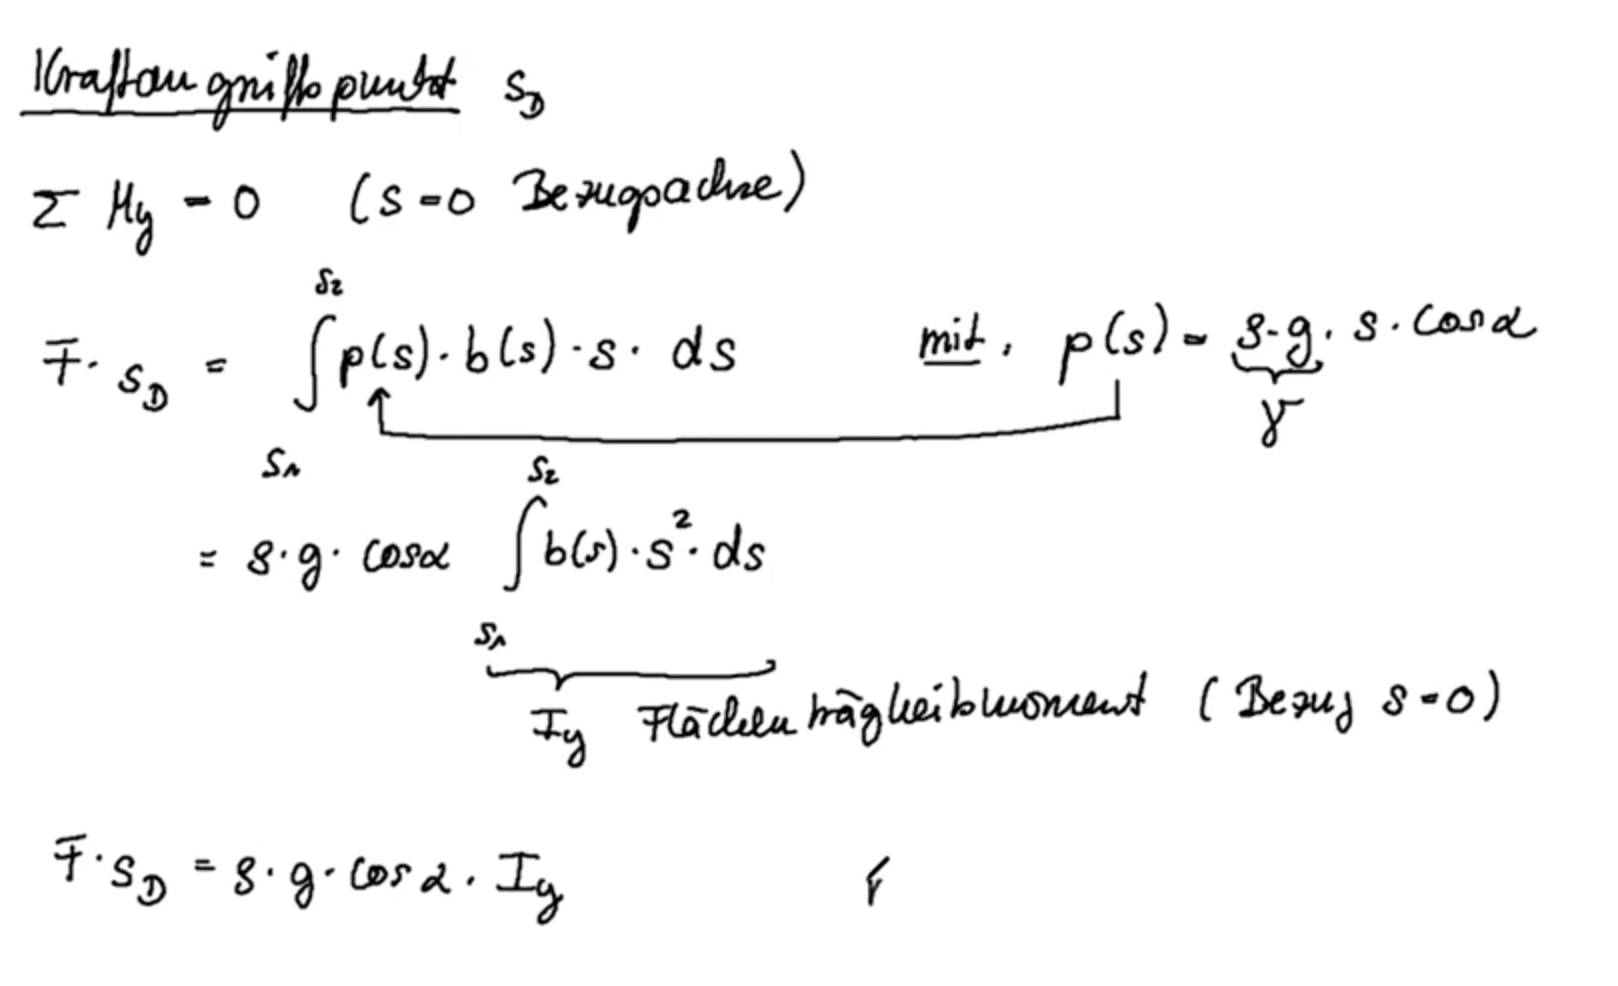 Kraftangriffspunkt s_D
Σ M_y = 0 (s=0 Bezugsachse)
F · s_D = ∫_{s_1}^{s_2} p(s) · b(s) · s · ds mit: p(s) = ρ·g · s · cos α
γ
= ρ · g · cos α ∫_{s_1}^{s_2} b(s) · s² · ds
I_y Flächenträgheitsmoment (Bezug s=0)
F · s_D = ρ · g · cos α · I_y